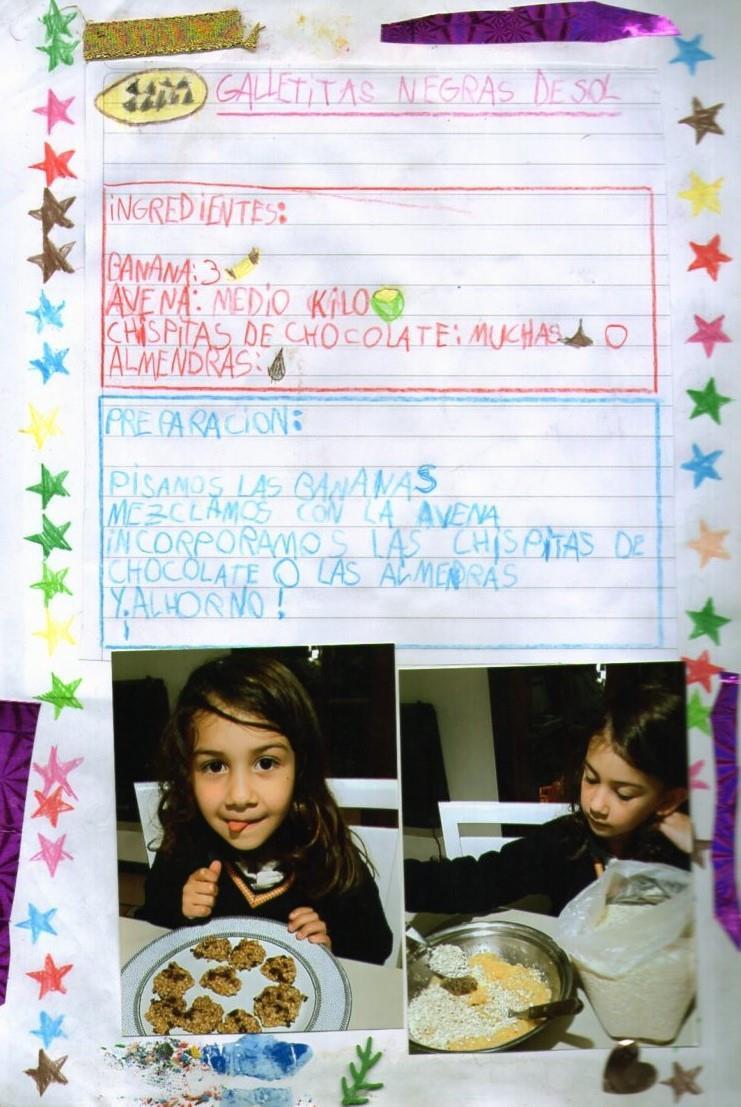 GALLETITAS NEGRAS DE SOL
INGREDIENTES:
BANANA: 3
AVENA: MEDIO KILO
CHISPITAS DE CHOCOLATE: MUCHAS O
ALMENDRAS:
PREPARACION:
PISAMOS LAS BANANAS
MEZCLAMOS CON LA AVENA
INCORPORAMOS LAS CHISPITAS DE
CHOCOLATE O LAS ALMENDRAS
Y.AL HORNO!